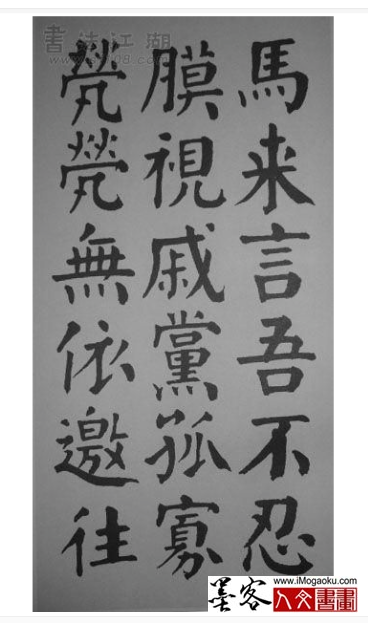 書法江湖
馬来言吾不忍
膜視戚黨孤寡
煢煢無依邀往
墨客
www.iMogaoku.com
人文書畫